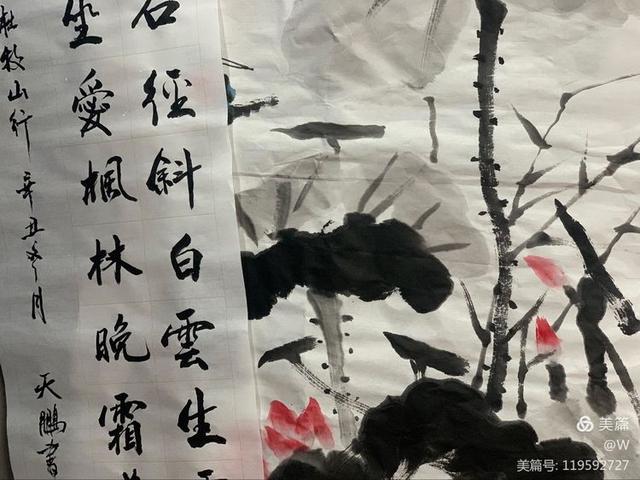 石徑斜白雲生
坐愛楓林晚霜
杜牧山行 辛丑冬月
天鵬書
美篇
@W
美篇号: 119592727